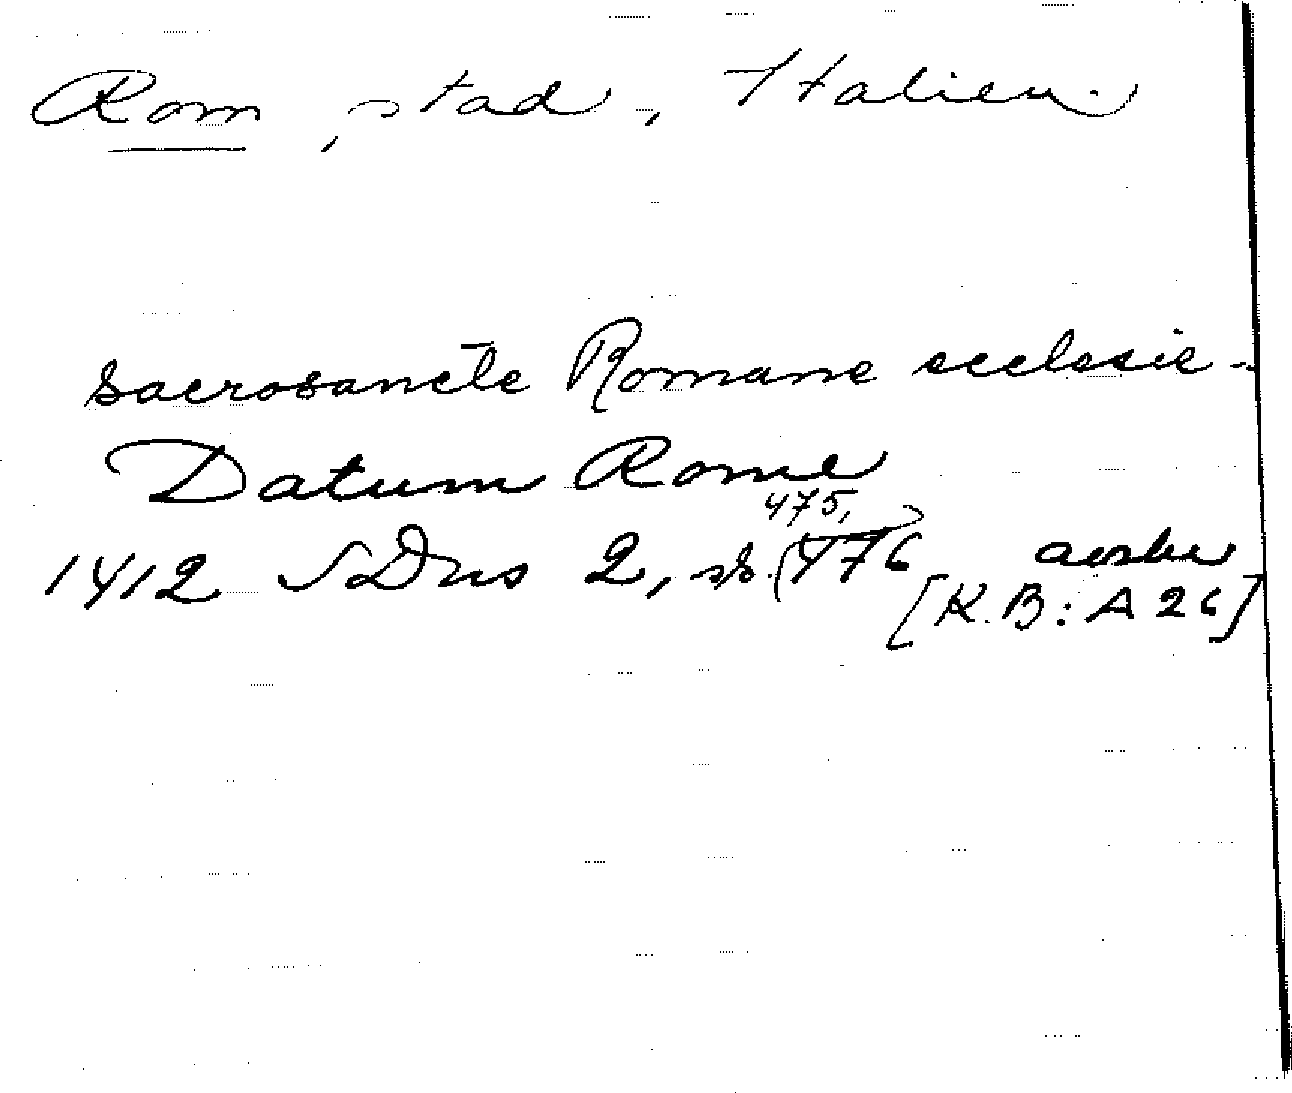 Rom, stad, Italien.
sacrosancte Romane ecclesie -
Datum Rome
475,
1412 SDns 2, sh. (476 avskr
[K.B: A 26]